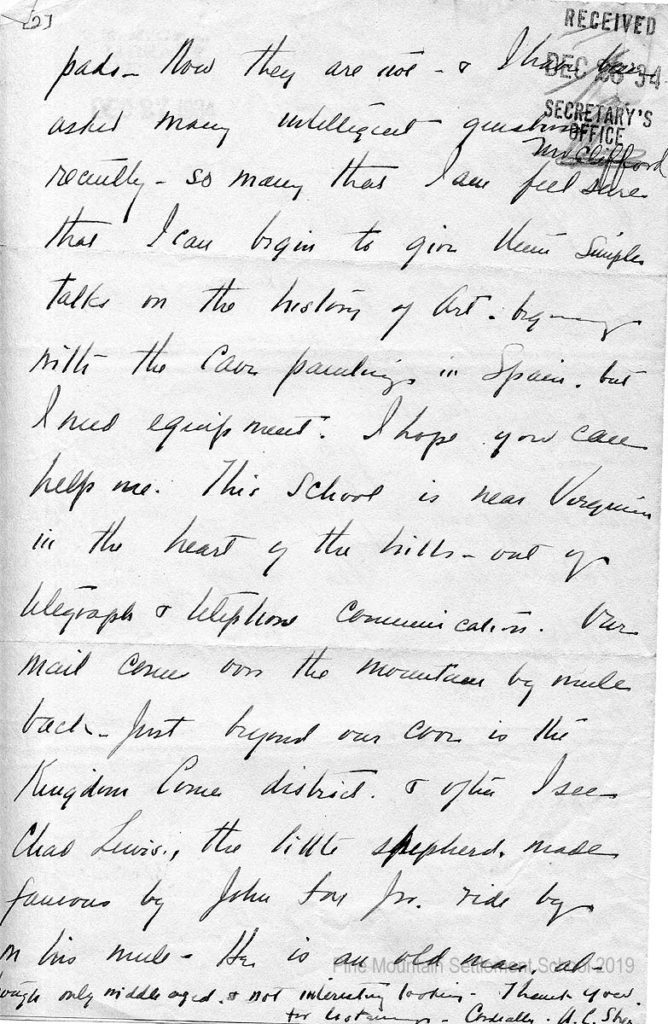 [2]
RECEIVED
DEC 26 34
SECRETARY'S
OFFICE
Mr Clifford
pads - Now they are not - & I have been
asked many intelligent questions
recently - so many that I am feel sure
that I can begin to give them simple
talks on the history of Art. beginning
with the cave paintings in Spain. but
I need equipment. I hope you can
help me. This School is near Virginia
in the heart of the hills - out of
telegraph & telephone communication. Our
mail comes over the mountain by mule
back - Just beyond our cove is the
Kingdom Come district. & often I see
Chad Lewis, the little shepherd, made
famous by John Fox Jr. ride by
on his mule - He is an old man, al-
though only middle aged. & not interesting looking - Thank you
for listening - Cordially - A. C.
Pine Mountain Settlement School-2019